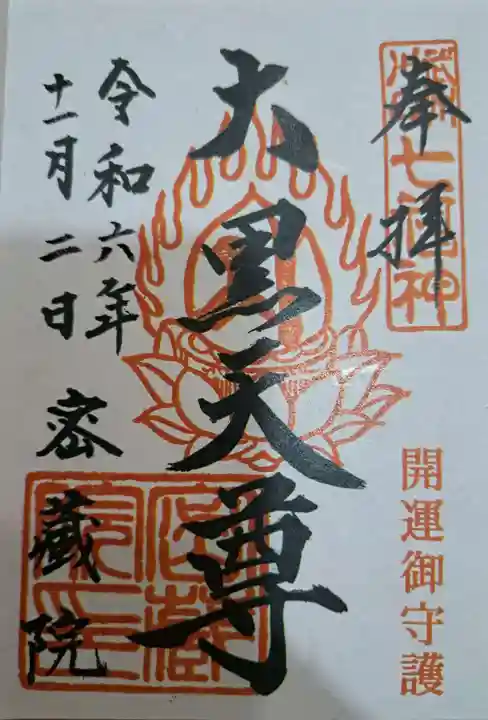 奉拝
七福神
開運御守護
大黒天尊
令和六年
十一月二日
密蔵院